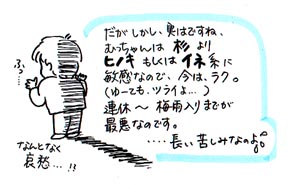 だがしかし、実はですね、
むっちゃんは 杉 より
ヒノキ もしくは イネ系に
敏感なので、今は、ラク。
(ゆーても、ツライよ…)
連休〜梅雨入りまでが
最悪なのです。
‥‥長い苦しみなのよ
ふっ…
なんとなく
哀愁…!?